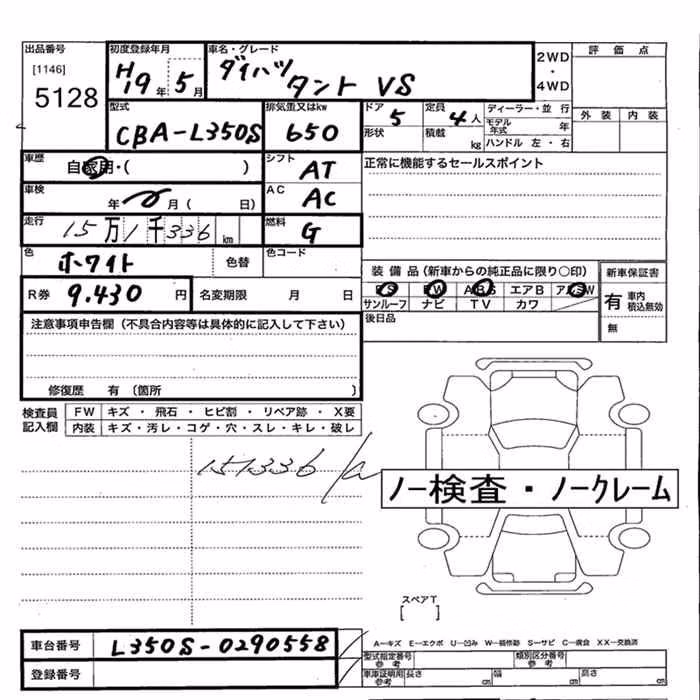 出品番号 初度登録年月 車名・グレード 評価点
[1146] H19年5月 ダイハツ タント VS 2WD・4WD
5128
型式 排気量又はkw ドア 定員 ディーラー・並行 外装 内装
CBA-L350S 650 5 4人 モデル年式 年
形状 積載 kg ハンドル 左・右
車歴 自家用・( ) シフト AT 正常に機能するセールスポイント
車検 年 月( 日) AC AC
走行 15万1千336km 燃料 G
色 ホワイト 色替 色コード
装備品(新車からの純正品に限り○印) 新車保証書
R券 9.430円 名変期限 月 日 PS PW ABS エアB アルミW 有 車内積込無効
サンルーフ ナビ TV カワ 無
注意事項申告欄(不具合内容等は具体的に記入して下さい) 後日品
修復歴 有〔箇所 〕
検査員記入欄 FW キズ・飛石・ヒビ割・リペア跡・X要
内装 キズ・汚レ・コゲ・穴・スレ・キレ・破レ
151336
ノー検査・ノークレーム
スペアT
[ ]
車台番号 L350S-0290558 A-キズ E-エクボ U-凹み W-補修跡 S-サビ C-腐食 XX-交換済
型式指定番号 参考 類別区分番号 参考
登録番号 車庫証明用 参考 長さ cm 幅 cm 高さ cm